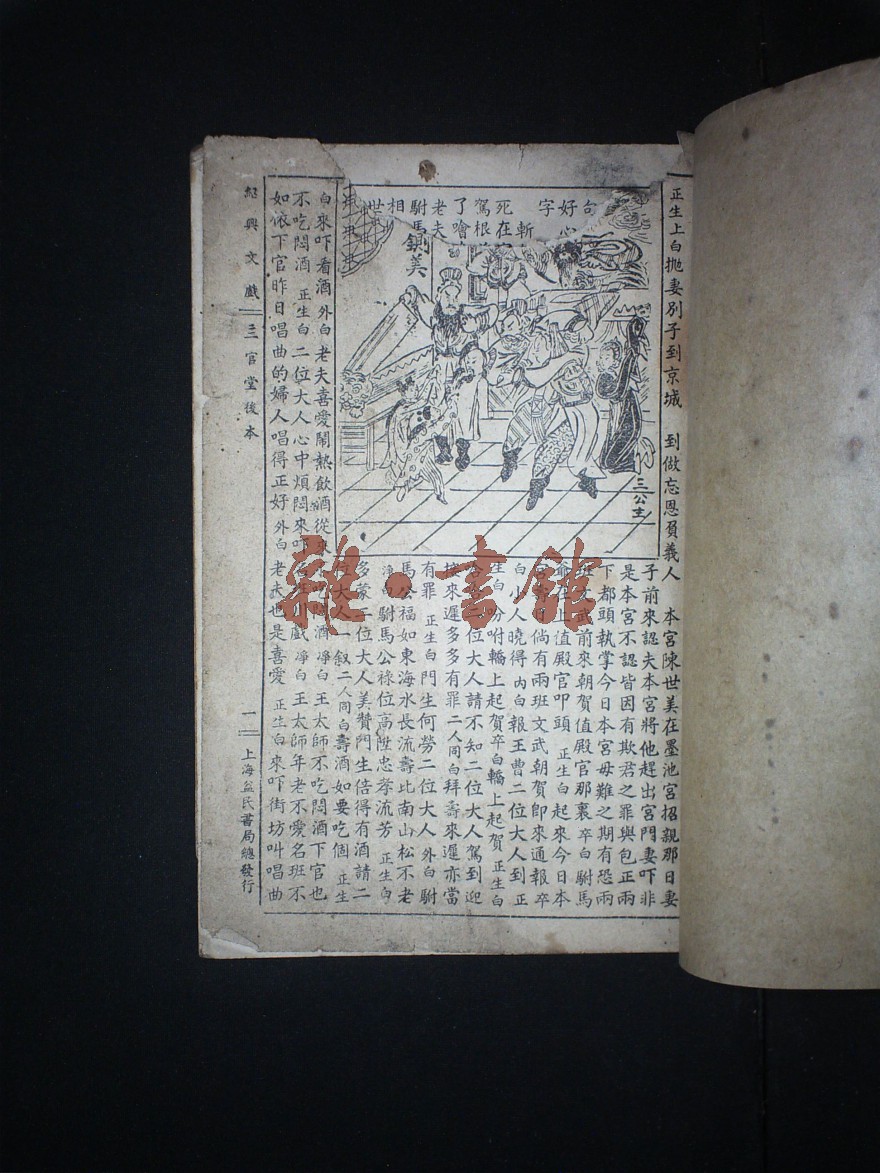 正生上白拋妻別子到京城 到做忘恩負義人 本宮陳世美在墨池宮招親那日妻
子前來認夫本宮將他趕出宮門妻吓非
是本宮不認皆因有欺君之罪與包正兩
下都頭執掌今日本宮母難之期有恐兩
文武前來朝賀值殿官那裏卒白駙馬
爺在上值殿官叩頭 正生白起來今日本
日倘有兩班文武朝賀卽來通報卒
白小人曉得內白報王曹二位大人到 正
生白分咐轎上起賀卒白轎上起賀 正生白
二位大人請不知二位大人駕到迎
接來遲多多有罪二人同白拜壽來遲亦當
有罪 正生白門生何勞二位大人 外白駙
馬公福如東海水長流壽比南山松不老
淨白駙馬公祿位高陞忠孝流芳 正生白
多蒙二位大人美贊門生俈得有酒請二
位大人一叙二人同白壽酒如要吃個 正生
白來吓看酒 外白老夫喜愛鬧熱飲酒從來不吃悶酒 淨白王太師不吃悶酒下官也
不吃悶酒 正生白二位大人心中煩悶來吓戲 淨白王太師年老不愛名班不
如依下官昨日唱曲的婦人唱得正好 外白老夫也是喜愛 正生白來吓街坊叫唱曲
句
好心
字
斬
死在
駕根
了噲
老夫
駙馬
相
世
鍘美
三公主
紹興文戲 三官堂後本 一 上海益民書局總發行
雜·書館